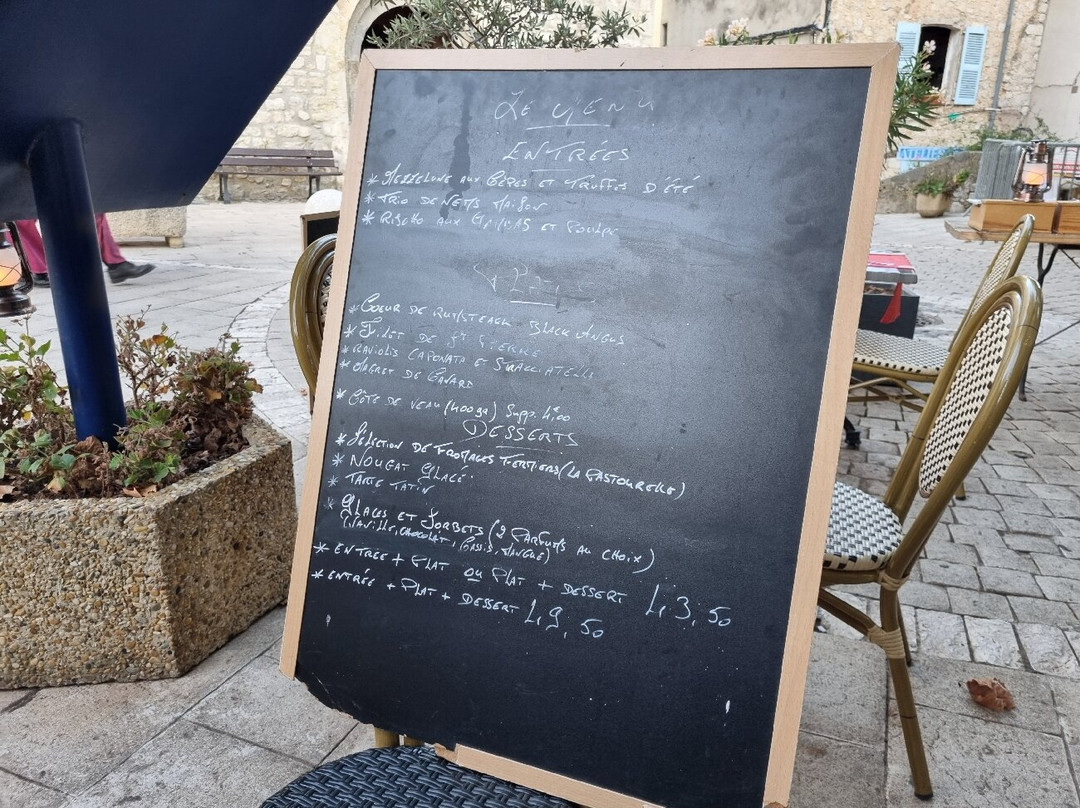 Le MENU
ENTRÉES
* MEZZELUNE AUX CÈPES ET TRUFFES D'ÉTÉ
* TRIO DE NEMS MAISON
* RISOTTO AUX ET POULPE
PLATS
* COEUR DE RUMSTEACK BLACK ANGUS
* FILET DE St PIERRE
* RAVIOLIS CAPONATA ET STRACCIATELLA
* MAGRET DE CANARD
* CÔTE DE VEAU (400gr) Supp. 4€00
DESSERTS
* SÉLECTION DE FROMAGES FERMIERS (LA PASTOURELLE)
* NOUGAT GLACÉ.
* TARTE TATIN
* GLACES ET SORBETS (2 PARFUMS AU CHOIX)
(VANILLE, CHOCOLAT, CASSIS, MANGUE)
* ENTREE + PLAT OU PLAT + DESSERT 43,50
* ENTRÉE + PLAT + DESSERT 49,50